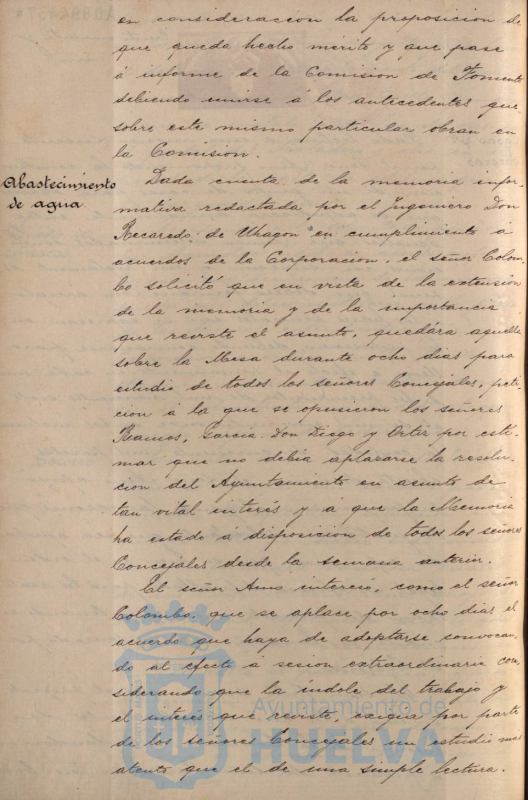 en consideracion la proposicion de
que queda hecho mérito y que pase
á informe de la Comision de Fomento
debiendo unirse á los antecedentes que
sobre este mismo particular obran en
la Comision.
Abastecimiento
de agua
Dada cuenta de la memoria infor-
mativa redactada por el Ingeniero Don
Recaredo de Uhagon en cumplimiento á
acuerdos de la Corporacion, el señor Colom-
bo solicitó que en vista de la extension
de la memoria y de la importancia
que reviste el asunto, quedára aquella
sobre la Mesa durante ocho dias para
estudio de todos los señores Concejales, peti-
cion á la que se opusieron los señores
Ramos, Garcia Don Diego y Ortiz por esti-
mar que no debia aplazarse la resolu-
cion del Ayuntamiento en asunto de
tan vital interés y á que la Memoria
ha estado á disposicion de todos los señores
Concejales desde la semana anterior.
El señor Amo interesó, como el señor
Colombo, que se aplace por ocho dias el
acuerdo que haya de adoptarse convocan-
do al efecto a sesion extraordinaria con-
siderando que la índole del trabajo y
el interés que reviste, exigia por parte
de los señores Concejales un estudio mas
atento que el de una simple lectura.
Ayuntamiento de
HUELVA